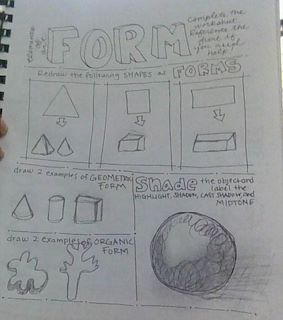 elements of art
FORM
Complete the
worksheet.
Reference the
if
you need
help
Redraw the following SHAPES as FORMS
draw 2 examples of GEOMETRIC
FORM
Shade the object and
label the
HIGHLIGHT, SHADOW, CAST SHADOW, and
MIDTONE
draw 2 examples of ORGANIC
FORM